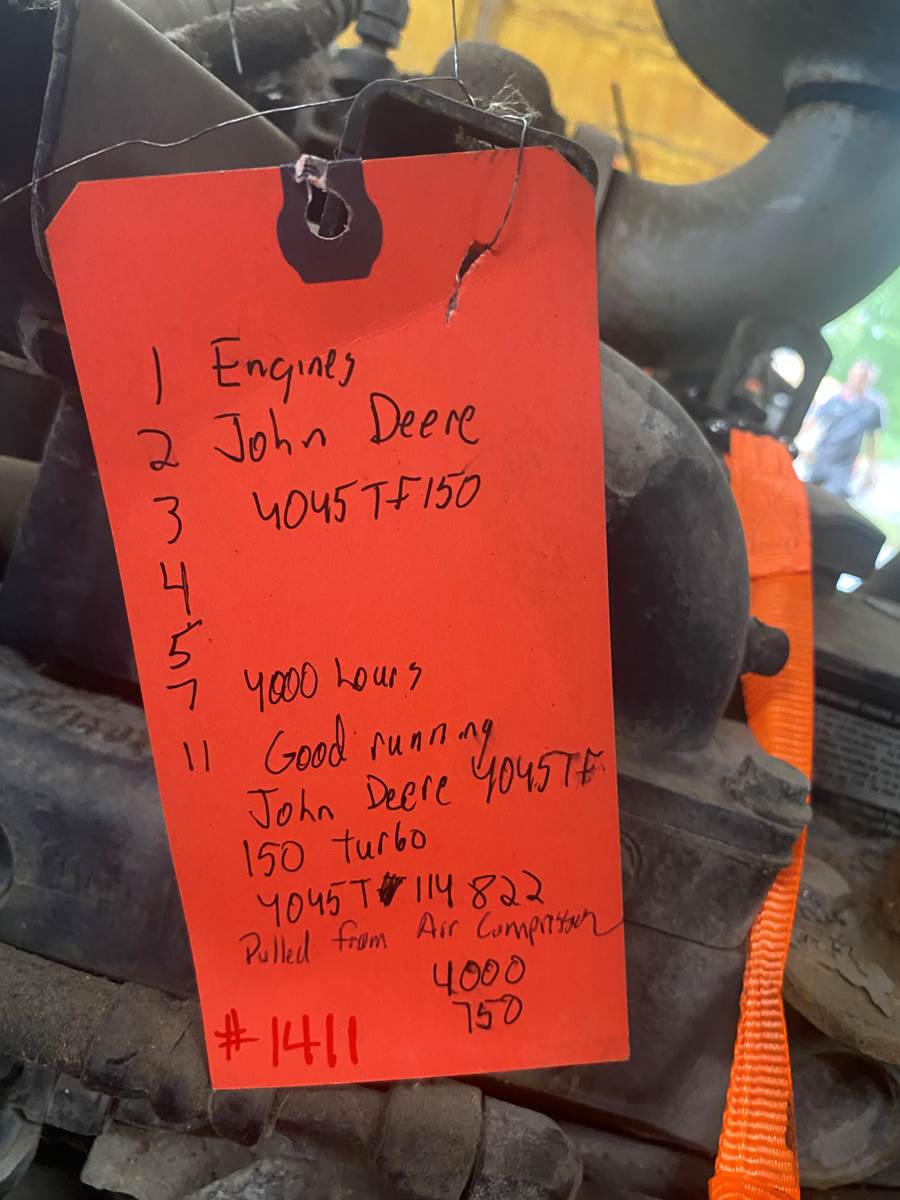 1 Engines
2 John Deere
3 4045TF150
4
5
7 4000 hours
11 Good running
John Deere 4045TF
150 turbo
4045T 114822
Pulled from Air Compressor
4000
750
#1411